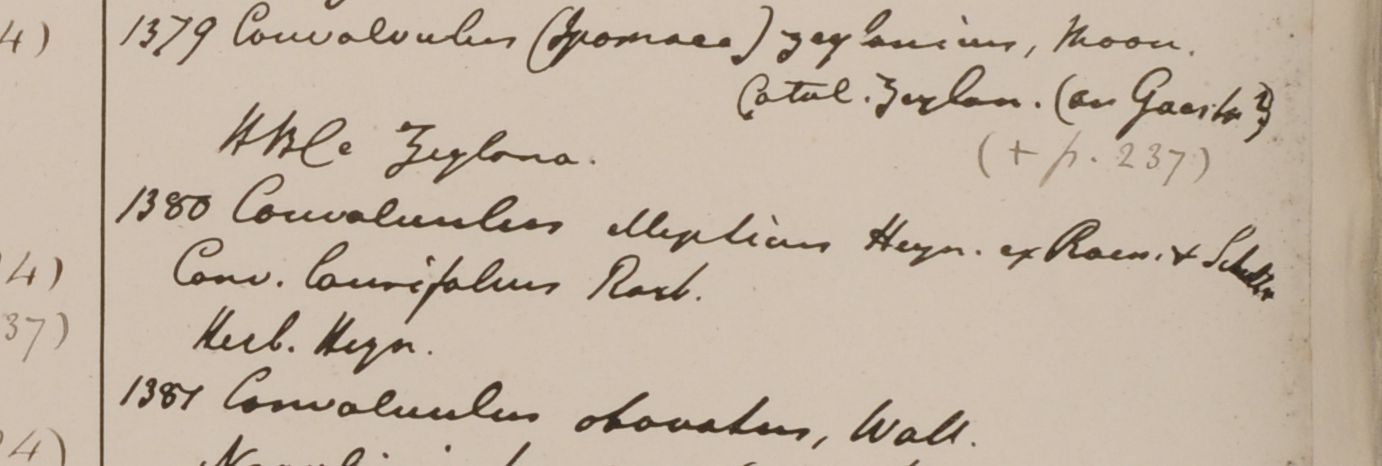 4)
1379 Convolvulus (Ipomaea) zeylanicus, Moon.
Catal. Zeylan. (an Gaertn?)
HBC e Zeylona.
(+ p. 237)
1380 Convolvulus ellipticus Heyn. ex Roem. & Schult
4)
Conv. laurifolius Roxb.
37)
Herb. Heyn.
1381 Convolvulus obovatus, Wall.
4)